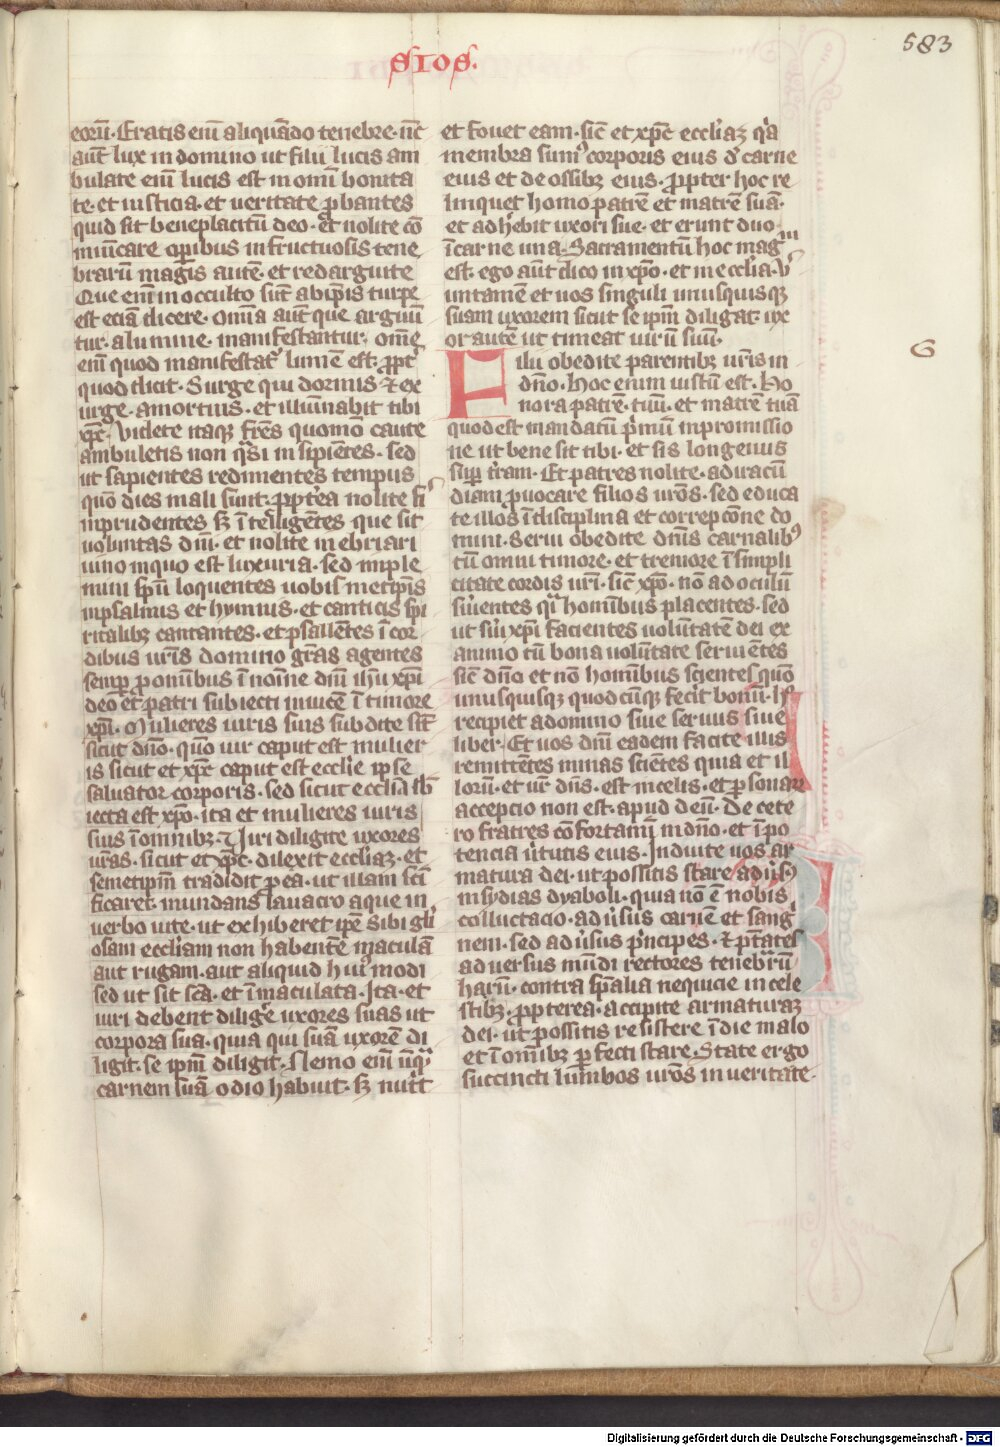 583
sios.
eorū. Eratis eni᷒ aliquādo tenebre. nūc
aūt lux in domino ut filii lucis am
bulate eni᷒ lucis est in omni bonita
te. et iusticia. et ueritate ꝓbantes
quid sit beneplacitū deo. et nolite cō
mūicare oꝑibus infructuosis tene
brarū magis autē. et redarguite
Que eni᷒ in occulto fiūt ab ip̄is turpe
est eciā dicere. Omīa aūt que arguū
tur. a lumine. manifestantur. omē
eni᷒ quod manifestat᷑ lumē est. ꝓpt̄
quod dicit. Surge qui dormis ⁊ ex
urge. a mortuis. et illumīabit tibi
xp̄c. Videte itaqꝫ fr̄es quomō caute
ambuletis non q̄si insipiētes. sed
ut sapientes redimentes tempus
quō dies mali sunt. ꝓpt̄ea nolite fi᷒
inprudentes sꝫ ītelligētes que sit
uolūntas dn̄i. et nolite inebriari
uino in quo est luxuria. sed imple
mini sp̄u loquentes uobis metip̄is
in psalmis et hymnis. et canticis sp̄i
ritalibꝫ cantantes. et psallētes ī cor
dibus ur̄is domino gr̄as agentes
semꝑ ꝓ omībus ī noīne dn̄i ih̄u xp̄i
deo et patri subiecti inuicē ī timore
xp̄i. Mulieres uiris suis subdite sīt
sicut dn̄o. quō uir caput est mulier
is sicut et xp̄c caput est ecclie ip̄se
saluator corporis. sed sicut ecclīa sb̄
iecta est xp̄o. ita et mulieres uiris
suis ī omnibꝫ. Viri diligite uxores
ur̄as. sicut et xp̄c. dilexit eccliaꝫ. et
semetip̄m tradidit ꝓ ea. ut illam sc̄i
ficaret. mundans lauacro aque in
uerbo uite. ut exhiberet ip̄e sibi gl̄i
osam eccliam non habentē maculā
aut rugam. aut aliquid hui᷒modi
sed ut sit sc̄a. et īmaculata. Ita. et
uiri debent diligē uxores suas ut
corpora sua. quia qui suā uxorē di
ligit. se ip̄m diligit. Nemo eni᷒ ūq̄
carnem suā odio habuit. sꝫ nut̄t
et fouet eam. sic̄ et xp̄c eccliaꝫ q̄a
membra sum᷒ corporis eius d᷒ carne
eius et de ossibꝫ eius. ꝓpter hoc re
linquet homo patrē et matrē suā.
et adh̄ebit uxori sue. et erunt duo
ī carne una. Sacramentū hoc magū
est. ego aūt dico in xp̄o. et in ecclīa. V᷒
untamē et uos singuli unusquisqꝫ
suam uxorem sicut se ip̄m diligat. ux
or autē ut timeat uirū suū.
Filii obedite parentibꝫ ur̄is in
dn̄o. Hoc enim iustū est. Ho
nora patrē. tuū. et matrē tuā
quod est mandatū p̄mū in promissio
ne ut bene sit tibi. et sis longeuus
suꝑ t̄ram. Et patres nolite. ad iracū
diam ꝓuocare filios ur̄os. sed educa
te illos ī disciplina et correpcōne do
mini. Serui obedite dn̄is carnalibꝫ
cū omni timore. et tremore ī simpli
citate cordis ur̄i. sic̄ xp̄o. nō ad oculū
s̄uientes q̄i homībus placentes. sed
ut s̄ui xp̄i facientes uolūtatē dei ex
animo cū bona uolūtate seruiētes
sic̄ dn̄o et nō homībus scientes quō
unusquisqꝫ quodcūqꝫ fecit bonū. h᷒
recipiet a domino siue seruus siue
liber. Et uos dn̄i eadem facite illis
remittētes minas sciētes quia et il
lorū. et ur̄ dn̄s. est in celis. et ꝑsonaꝝ
accepcio non est. apud deū. De cete
ro fratres cōfortamī in dn̄o. et ī po
tencia u̇tutis eius. Induite uos ar
matura dei. ut possitis stare adu̇s᷒
insydias dyaboli. quia nō ē nobis
colluctacio. adu̇sus carnē et sanḡ
nem. sed adu̇sus p̄ncipes. ⁊ p̄tātes
aduersus mūdi rectores tenebr̄ū
harū. contra sp̄alia nequicie in cele
stibꝫ. ꝓpterea. accipite armaturaꝫ
dei. ut possitis resistere ī die malo
et ī omībꝫ ꝑfecti stare. State ergo
succincti lūmbos ur̄os in ueritate.
G
Digitalisierung gefördert durch die Deutsche Forschungsgemeinschaft - DFG